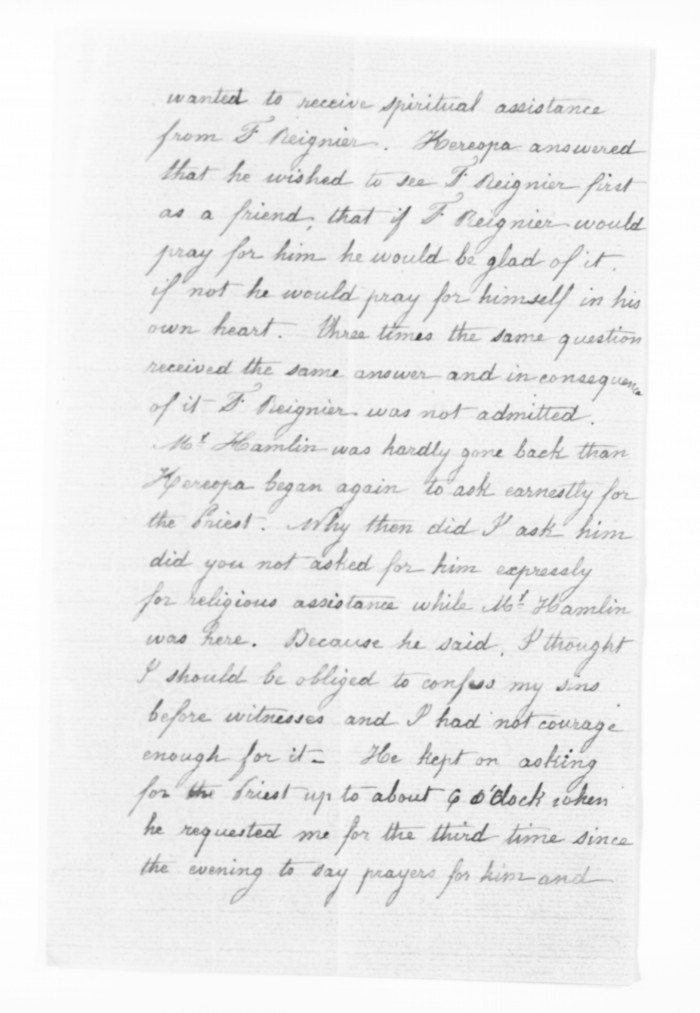 wanted to receive spiritual assistance
from F. Reignier. Kereopa answered
that he wished to see F. Reignier first
as a friend, that if F. Reignier would
pray for him he would be glad of it.
if not he would pray for himself in his
own heart. Three times the same question
received the same answer and in consequence
of it F. Reignier was not admitted.
Mr. Hamlin was hardly gone back than
Kereopa began again to ask earnestly for
the Priest. Why then did I ask him
did you not asked for him expressly
for religious assistance while Mr. Hamlin
was here. Because he said, I thought
I should be obliged to confess my sins
before witnesses and I had not courage
enough for it - He kept on asking
for the Priest up to about 6 o'Clock when
he requested me for the third time since
the evening to say prayers for him and